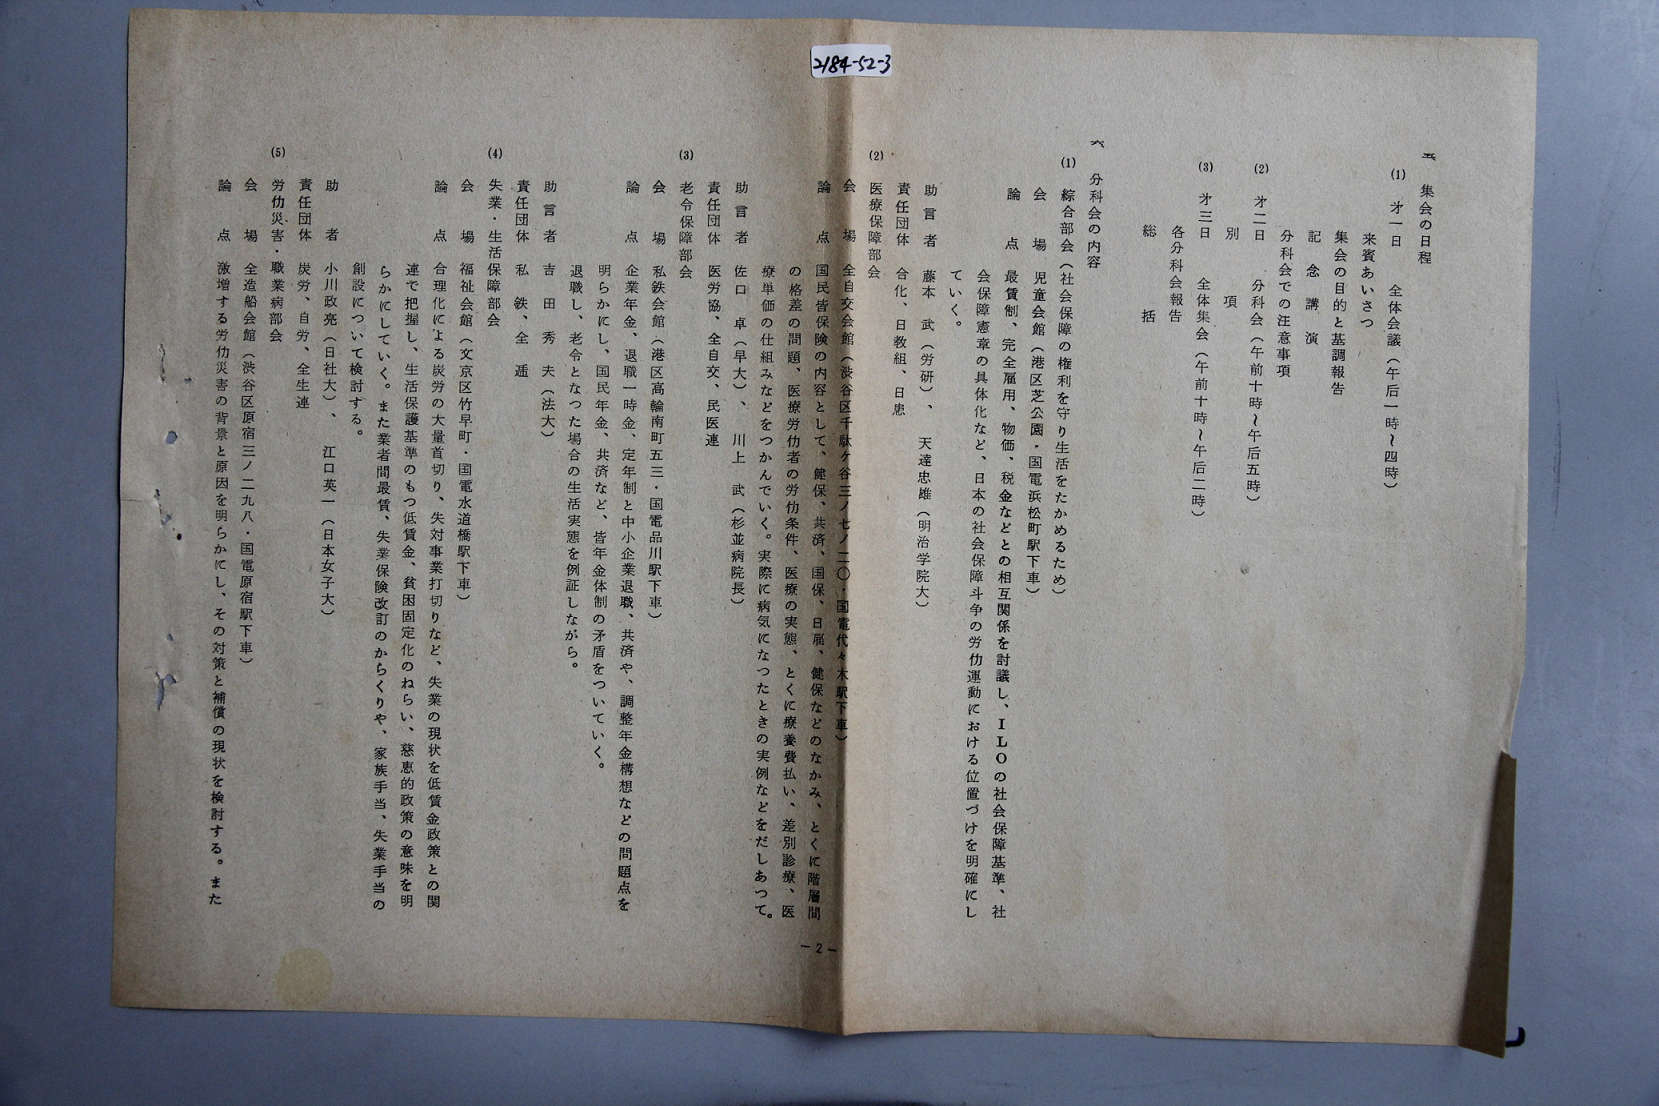 2184-52-3
五、集会の日程
(1) 才一日 全体会議（午后一時～四時）
来賓あいさつ
集会の目的と基調報告
記念講演
分科会での注意事項
(2) 才二日 分科会（午前十時～午后五時）
別項
(3) 才三日 全体集会（午前十時～午后二時）
各分科会報告
総括
六、分科会の内容
(1) 綜合部会（社会保障の権利を守り生活をたかめるため）
会場 児童会館（港区芝公園・国電浜松町駅下車）
論点 最賃制、完全雇用、物価、税金などとの相互関係を討議し、ＩＬＯの社会保障基準、社
会保障憲章の具体化など、日本の社会保障斗争の労仂運動における位置づけを明確にし
ていく。
助言者 藤本武（労研）、天達忠雄（明治学院大）
責任団体 合化、日教組、日患
(2) 医療保障部会
会場 全自交会館（渋谷区千駄ケ谷三ノ七ノ二〇・国電代々木駅下車）
論点 国民皆保険の内容として、健保、共済、国保、日雇、健保などのなかみ、とくに階層間
の格差の問題、医療労仂者の労仂条件、医療の実態、とくに療養費払い、差別診療、医
療単価の仕組みなどをつかんでいく。実際に病気になつたときの実例などをだしあつて。
助言者 佐口卓（早大）、川上武（杉並病院長）
責任団体 医労協、全自交、民医連
(3) 老令保障部会
会場 私鉄会館（港区高輪南町五三・国電品川駅下車）
論点 企業年金、退職一時金、定年制と中小企業退職、共済や、調整年金構想などの問題点を
明らかにし、国民年金、共済など、皆年金体制の矛盾をついていく。
退職し、老令となつた場合の生活実態を例証しながら。
助言者 吉田秀夫（法大）
責任団体 私鉄、全逓
(4) 失業・生活保障部会
会場 福祉会館（文京区竹早町・国電水道橋駅下車）
論点 合理化による炭労の大量首切り、失対事業打切りなど、失業の現状を低賃金政策との関
連で把握し、生活保護基準のもつ低賃金、貧困固定化のねらい、慈恵的政策の意味を明
らかにしていく。また業者間最賃、失業保険改訂のからくりや、家族手当、失業手当の
創設について検討する。
助言者 小川政亮（日社大）、江口英一（日本女子大）
責任団体 炭労、自労、全生連
(5) 労仂災害・職業病部会
会場 全造船会館（渋谷区原宿三ノ二九八・国電原宿駅下車）
論点 激増する労仂災害の背景と原因を明らかにし、その対策と補償の現状を検討する。また
－2－